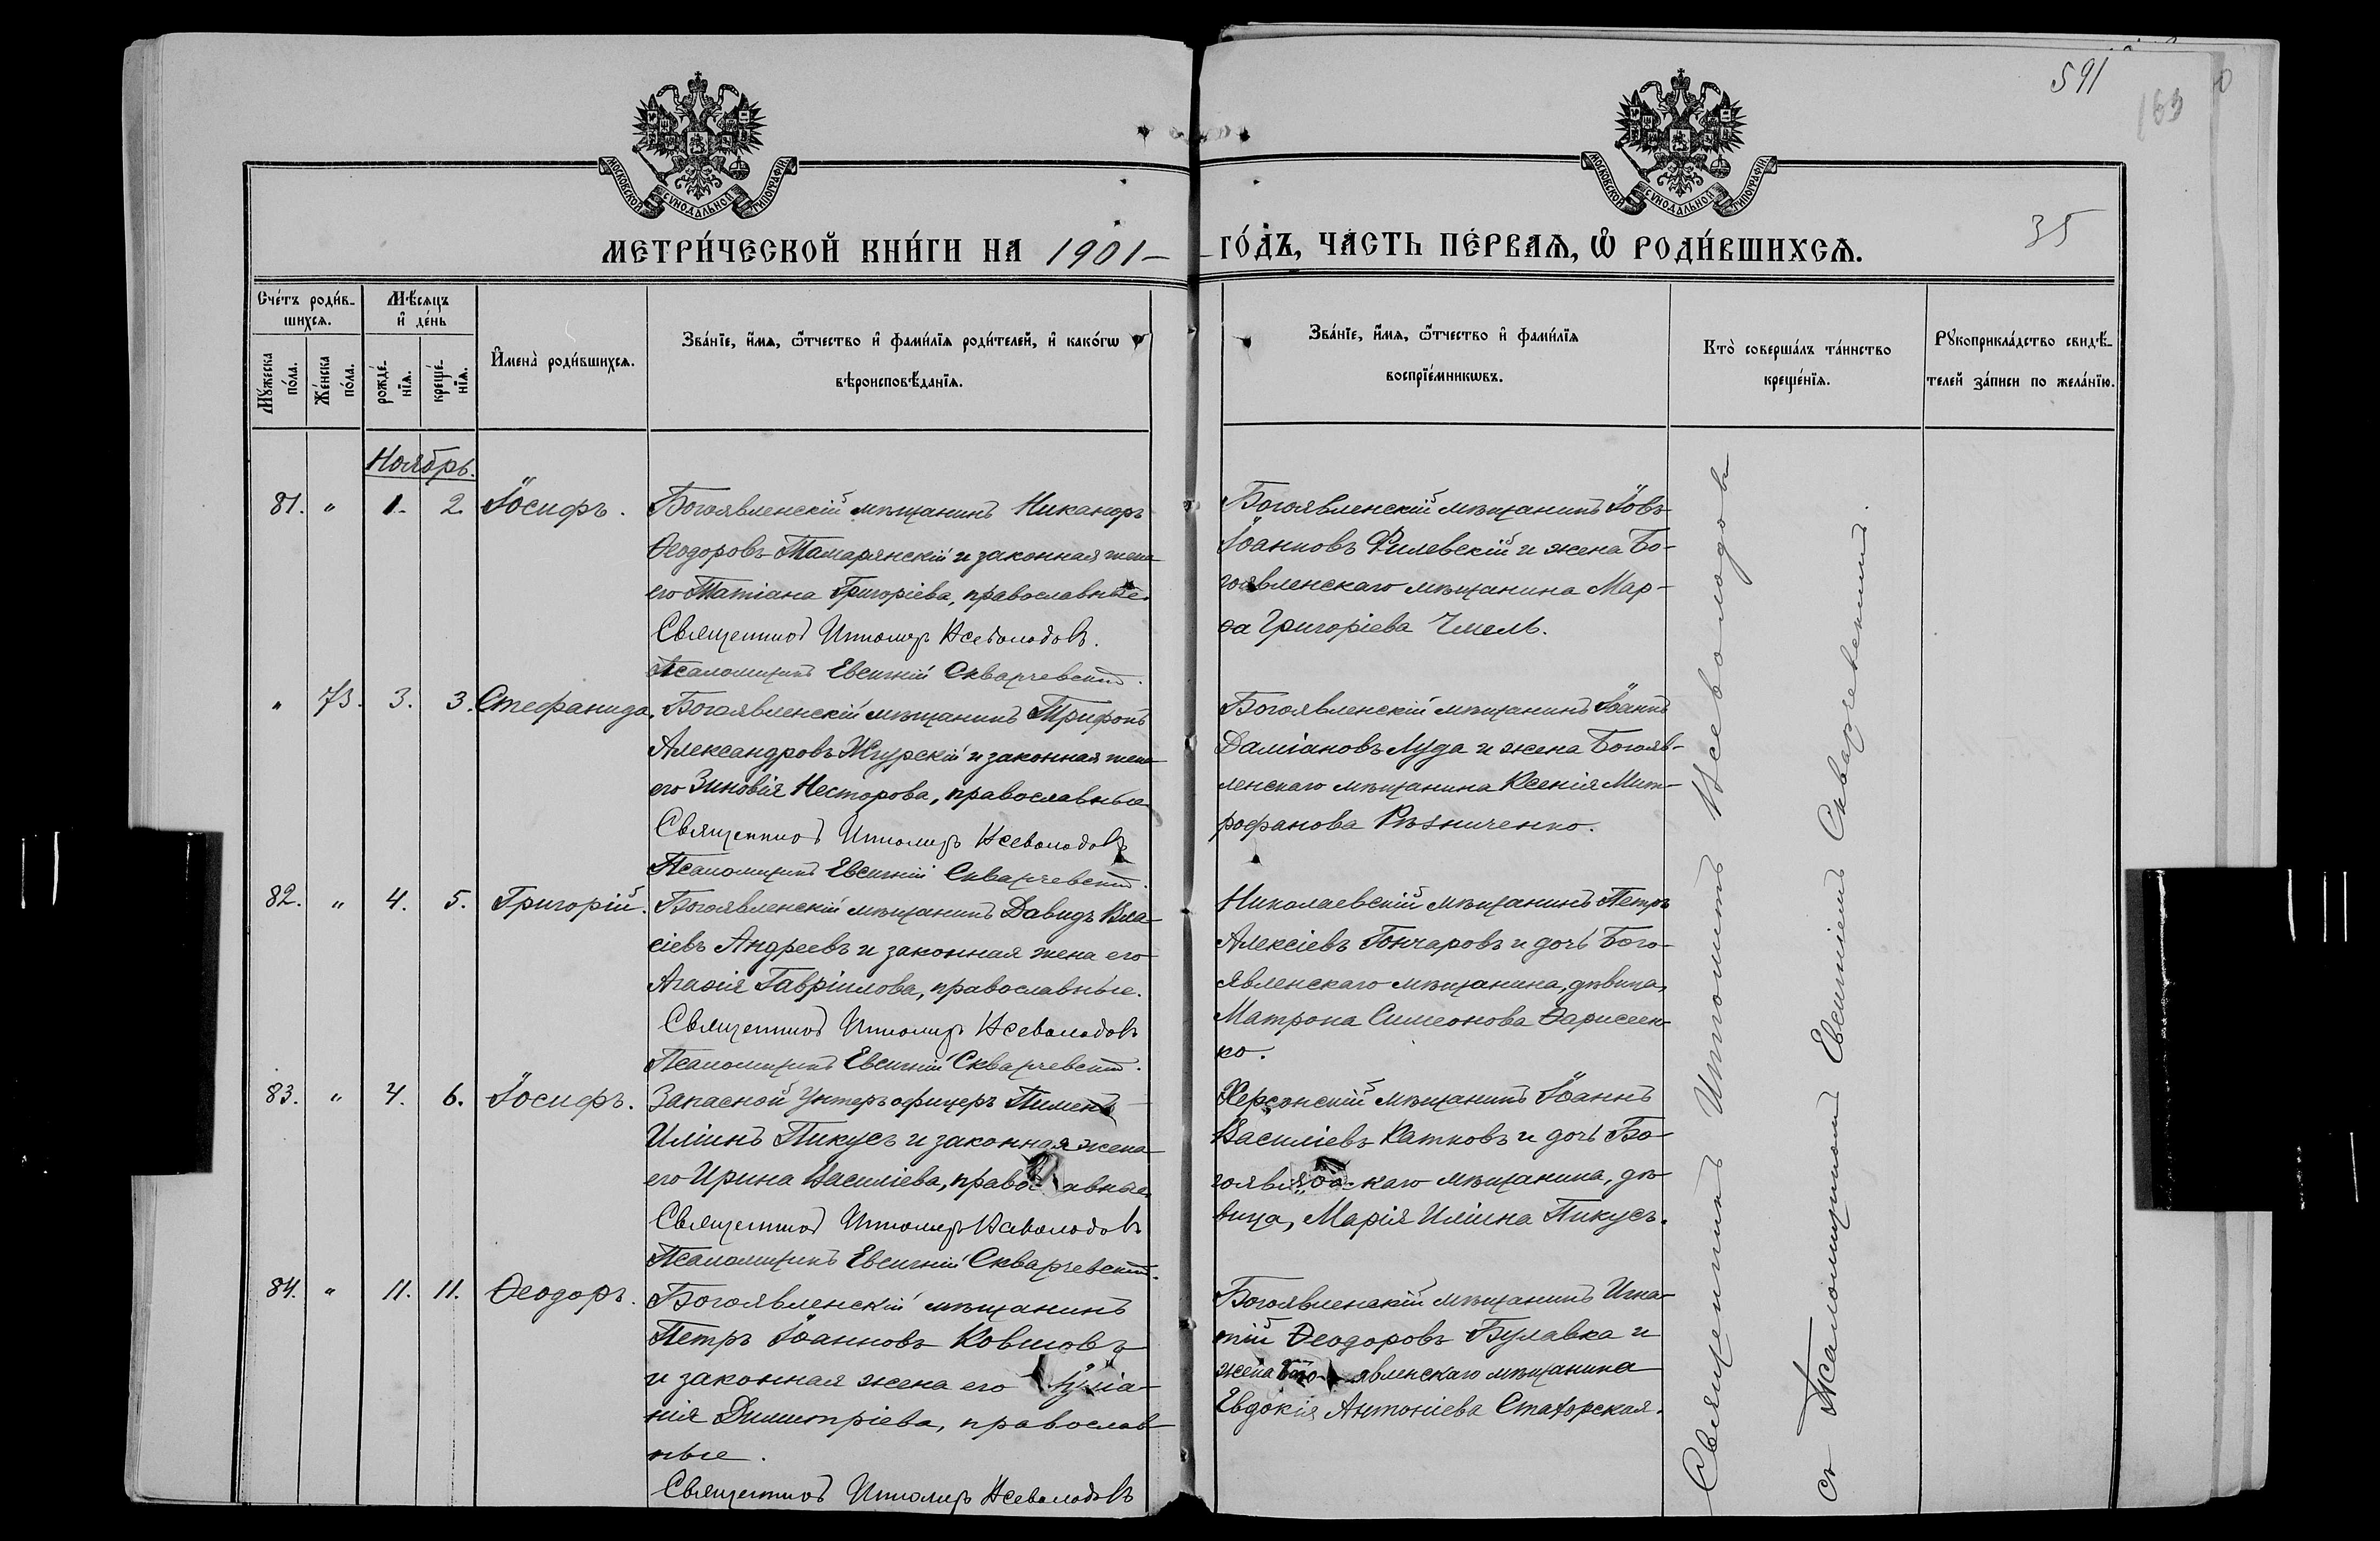 591
163
МОСКОВСКОЙ СУНОДАЛЬНОЙ ТИПОГРАФІИ
МОСКОВСКОЙ СУНОДАЛЬНОЙ ТИПОГРАФІИ
35
МЕТРИ́ЧЕСКОЙ КНИ́ГИ НА 1901 –
– ГО́ДЪ, ЧА́СТЬ ПЕ́РВАѦ, Ѡ҆ РОДИ́ВШИХСѦ.
Сче́тъ роди́в-
шихсѧ.
Мꙋжеска
по́ла.
Же́нска
по́ла.
Мѣ́сѧцъ
и҆ де́нь
рожде́-
нїѧ.
креще́-
нїѧ.
И҆мена̀ роди́вшихсѧ.
Зва́нїе, и҆́мѧ, ѻ҆́тчество и҆ фами́лїѧ роди́телей, и҆ како́гѡ
вѣроисповѣ́данїѧ.
Зва́нїе, и҆́мѧ, ѻ҆́тчество и҆ фами́лїѧ
воспрїе́мникѡвъ.
Кто̀ соверша́лъ та́инство
креще́нїѧ.
Рꙋкоприкла́дство свидѣ́-
телей за́писи по жела́нїю.
Ноябрь.
81. " 1. 2. Іосифъ.
Богоявленскій мѣщанинъ Никаноръ
Ѳеодоровъ Тамарянскій и законная жена
его Татіана Григоріева, православные.
Священникъ Всеволодовъ.
Псаломщикъ Евгеній Скварчевскій.
Богоявленскій мѣщанинъ Іовъ
Іоанновъ Филевскій и жена Бо-
гоявленскаго мѣщанина Мар-
ѳа Григоріева Чмель.
" 73. 3. 3. Стефанида.
Богоявленскій мѣщанинъ Трифонъ
Александровъ Жгурскій и законная жена
его Зиновія Несторова, православные
Священникъ Всеволодовъ
Псаломщикъ Евгеній Скварчевскій.
Богоявленскій мѣщанинъ Іоаннъ
Даміановъ Луда и жена Богояв-
ленскаго мѣщанина Ксенія Мит-
рофанова Рѣзниченко.
82. " 4. 5. Григорій.
Богоявленскій мѣщанинъ Давидъ Вла-
сіевъ Андреевъ и законная жена его
Агаѳія Гавріилова, православные.
Священникъ Всеволодовъ
Псаломщикъ Евгеній Скварчевскій.
Николаевскій мѣщанинъ Петръ
Алексіевъ Гончаровъ и дочь Бого-
явленскаго мѣщанина, дѣвица,
Матрона Симеонова Ѳарисеен-
ко.
83. " 4. 6. Іосифъ.
Запасной Унтеръ офицеръ Пименъ
Иліинъ Пикусъ и законная жена
его Ирина Василіева, православные
Священникъ Всеволодовъ
Псаломщикъ Евгеній Скварчевскій.
Херсонскій мѣщанинъ Іоаннъ
Василіевъ Катковъ и дочь Бо-
гоявленскаго мѣщанина, дѣ-
вица, Марія Иліина Пикусъ.
84. " 11. 11. Ѳеодоръ.
Богоявленскій мѣщанинъ
Петръ Іоанновъ Ковшовъ
и законная жена его Іуліа-
нія Димитріева, православ-
ные.
Священникъ Всеволодовъ
Богоявленскій мѣщанинъ Игна-
тій Ѳеодоровъ Булавка и
жена Богоявленскаго мѣщанина
Евдокія Антоніева Стахорская.
Священникъ Всеволодовъ
съ Псаломщикомъ Евгеніемъ Скварчевскимъ.